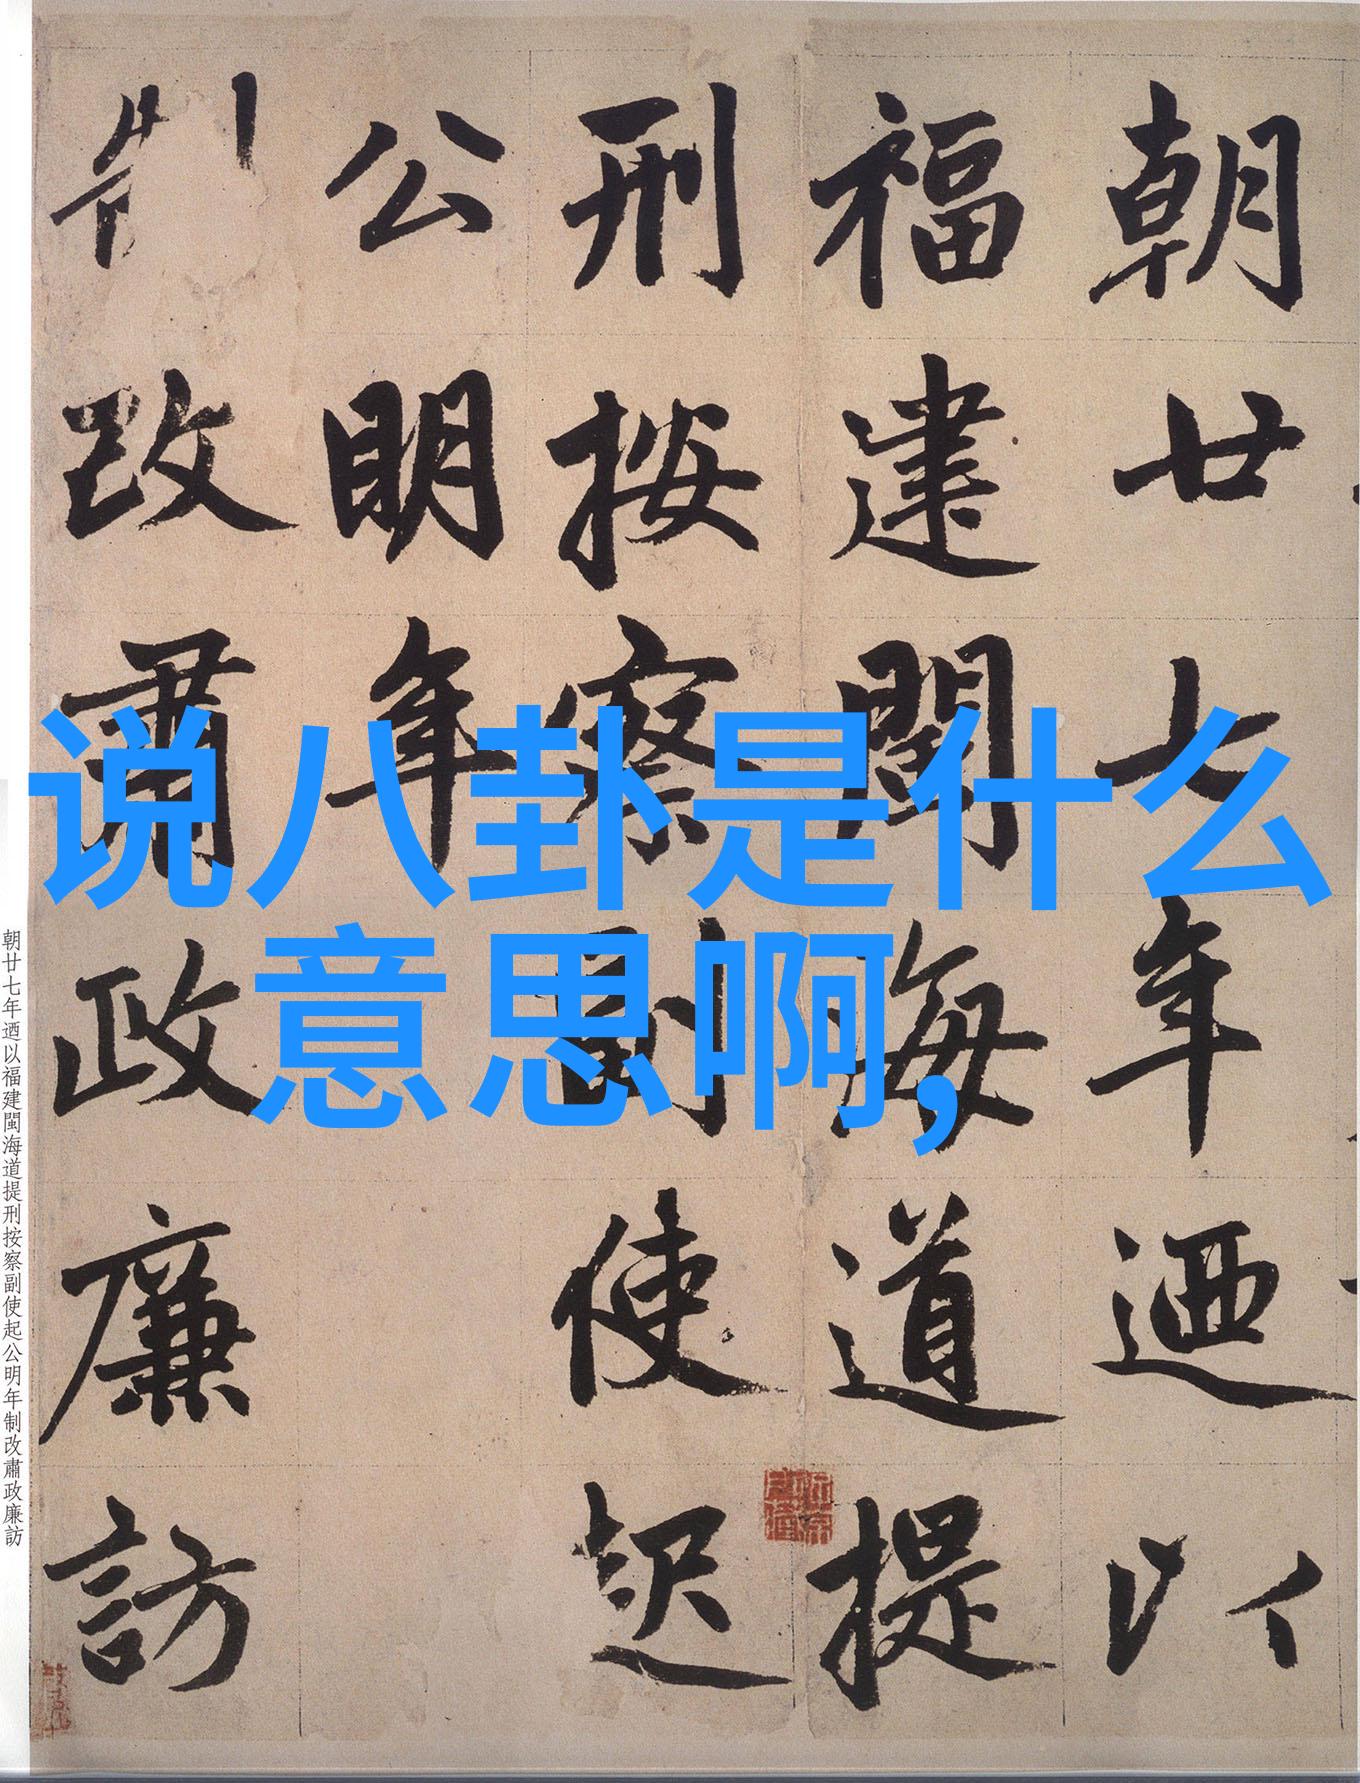 说八卦是什么
意思啊,
朝廿七年迺以
福建閩海道提
刑按察副使起
公明年
制改肅政廉訪
朝廿七年迺以福建閩海道提刑按察副使起公明年制改肅政廉訪